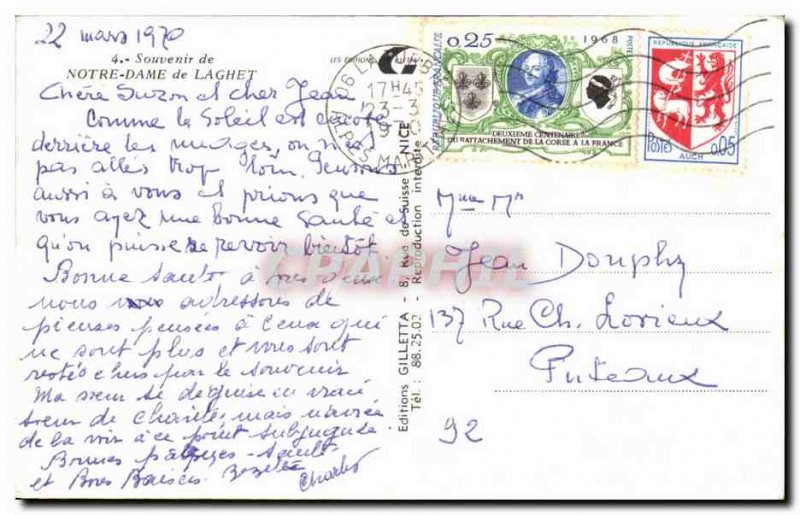 22 mars 1970
4.- Souvenir de
NOTRE-DAME de LAGHET
Chère Suzon et cher Jean
Comme le Soleil est encore
derrière les nuages, on n'est
pas allés trop loin. Pensons
aussi à vous et prions que
vous ayez une bonne santé et
qu'on puisse se revoir bientôt
Bonne santé à vous deux
nous vous adressons de
pieuses pensées à ceux qui
ne sont plus et vous sont
restés chers par le souvenir
Ma sœur se déguise en vraie
sœur de charité mais
de la voir à ce point
Bonnes Pâques - Santé
et Bons Baisers.
Charles
LES EDITIONS
Editions GILLETTA - 8, Rue de Suisse - NICE
Tél : 88.25.02 - Reproduction interdite
17H45
23-3
19
ALPES-MARITIMES
0,25
1968
POSTES
REPUBLIQUE FRANCAISE
DEUXIEME CENTENAIRE
DU RATTACHEMENT DE LA CORSE A LA FRANCE
REPUBLIQUE FRANÇAISE
POSTES
0,05
AUCH
Mme Mr
Jean Douphy
137 Rue Ch. Lorieux
Puteaux
92
CPAPHIL